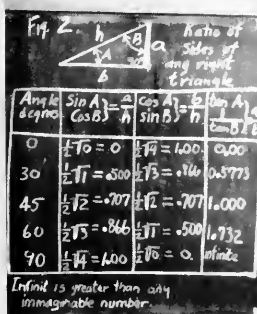 Fig 2.
h
B
A
30°
a
b
Ratio of
sides of
any right
triangle
Angle degrees | Sin A CosB } = a/h | cos A sin B } = b/h | tan A 1/tan B }
0 | ½√0 = 0 | ½√4 = 1.00 | 0.00
30 | ½√1 = .500 | ½√3 = .866 | 0.5773
45 | ½√2 = .707 | ½√2 = .707 | 1.000
60 | ½√3 = .866 | ½√1 = .500 | 1.732
90 | ½√4 = 1.00 | ½√0 = 0. | infinite
Infinit is greater than any
immaginable number.